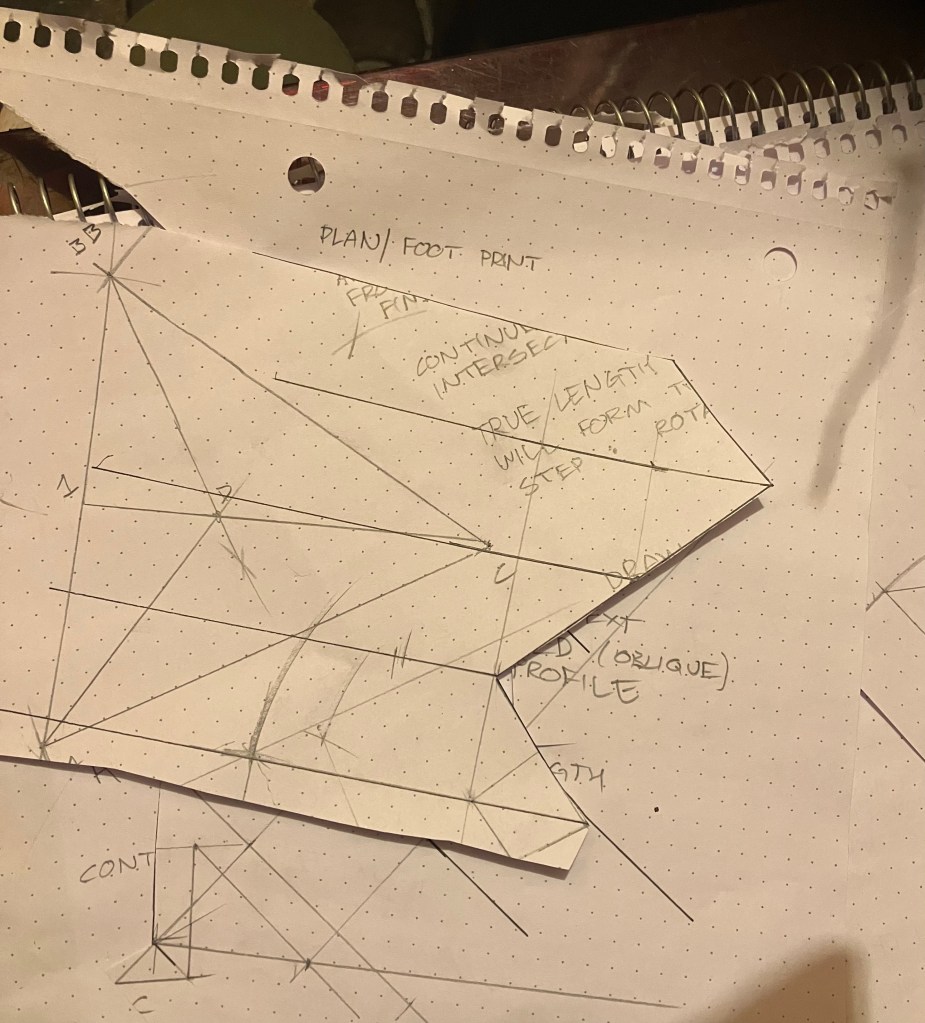 BB
PLAN/ FOOT PRINT
FIN
CONTINUE
INTERSECT
TRUE LENGTH
WILL FORM T
STEP : ROTA
1
D
C
DRAW
EXT
ED (OBLIQUE)
PROFILE
A
GTH
CONT
C